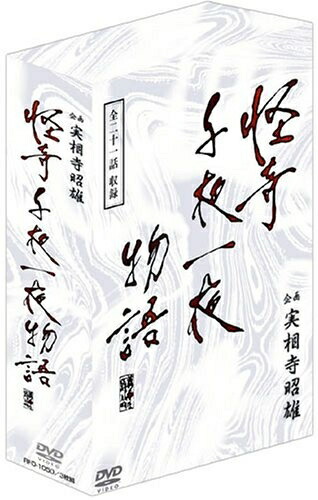 企画 実相寺昭雄
怪奇千夜一夜物語
DVD
全二十一話 収録
怪奇
千夜一夜
物語
企画 実相寺昭雄
DVD